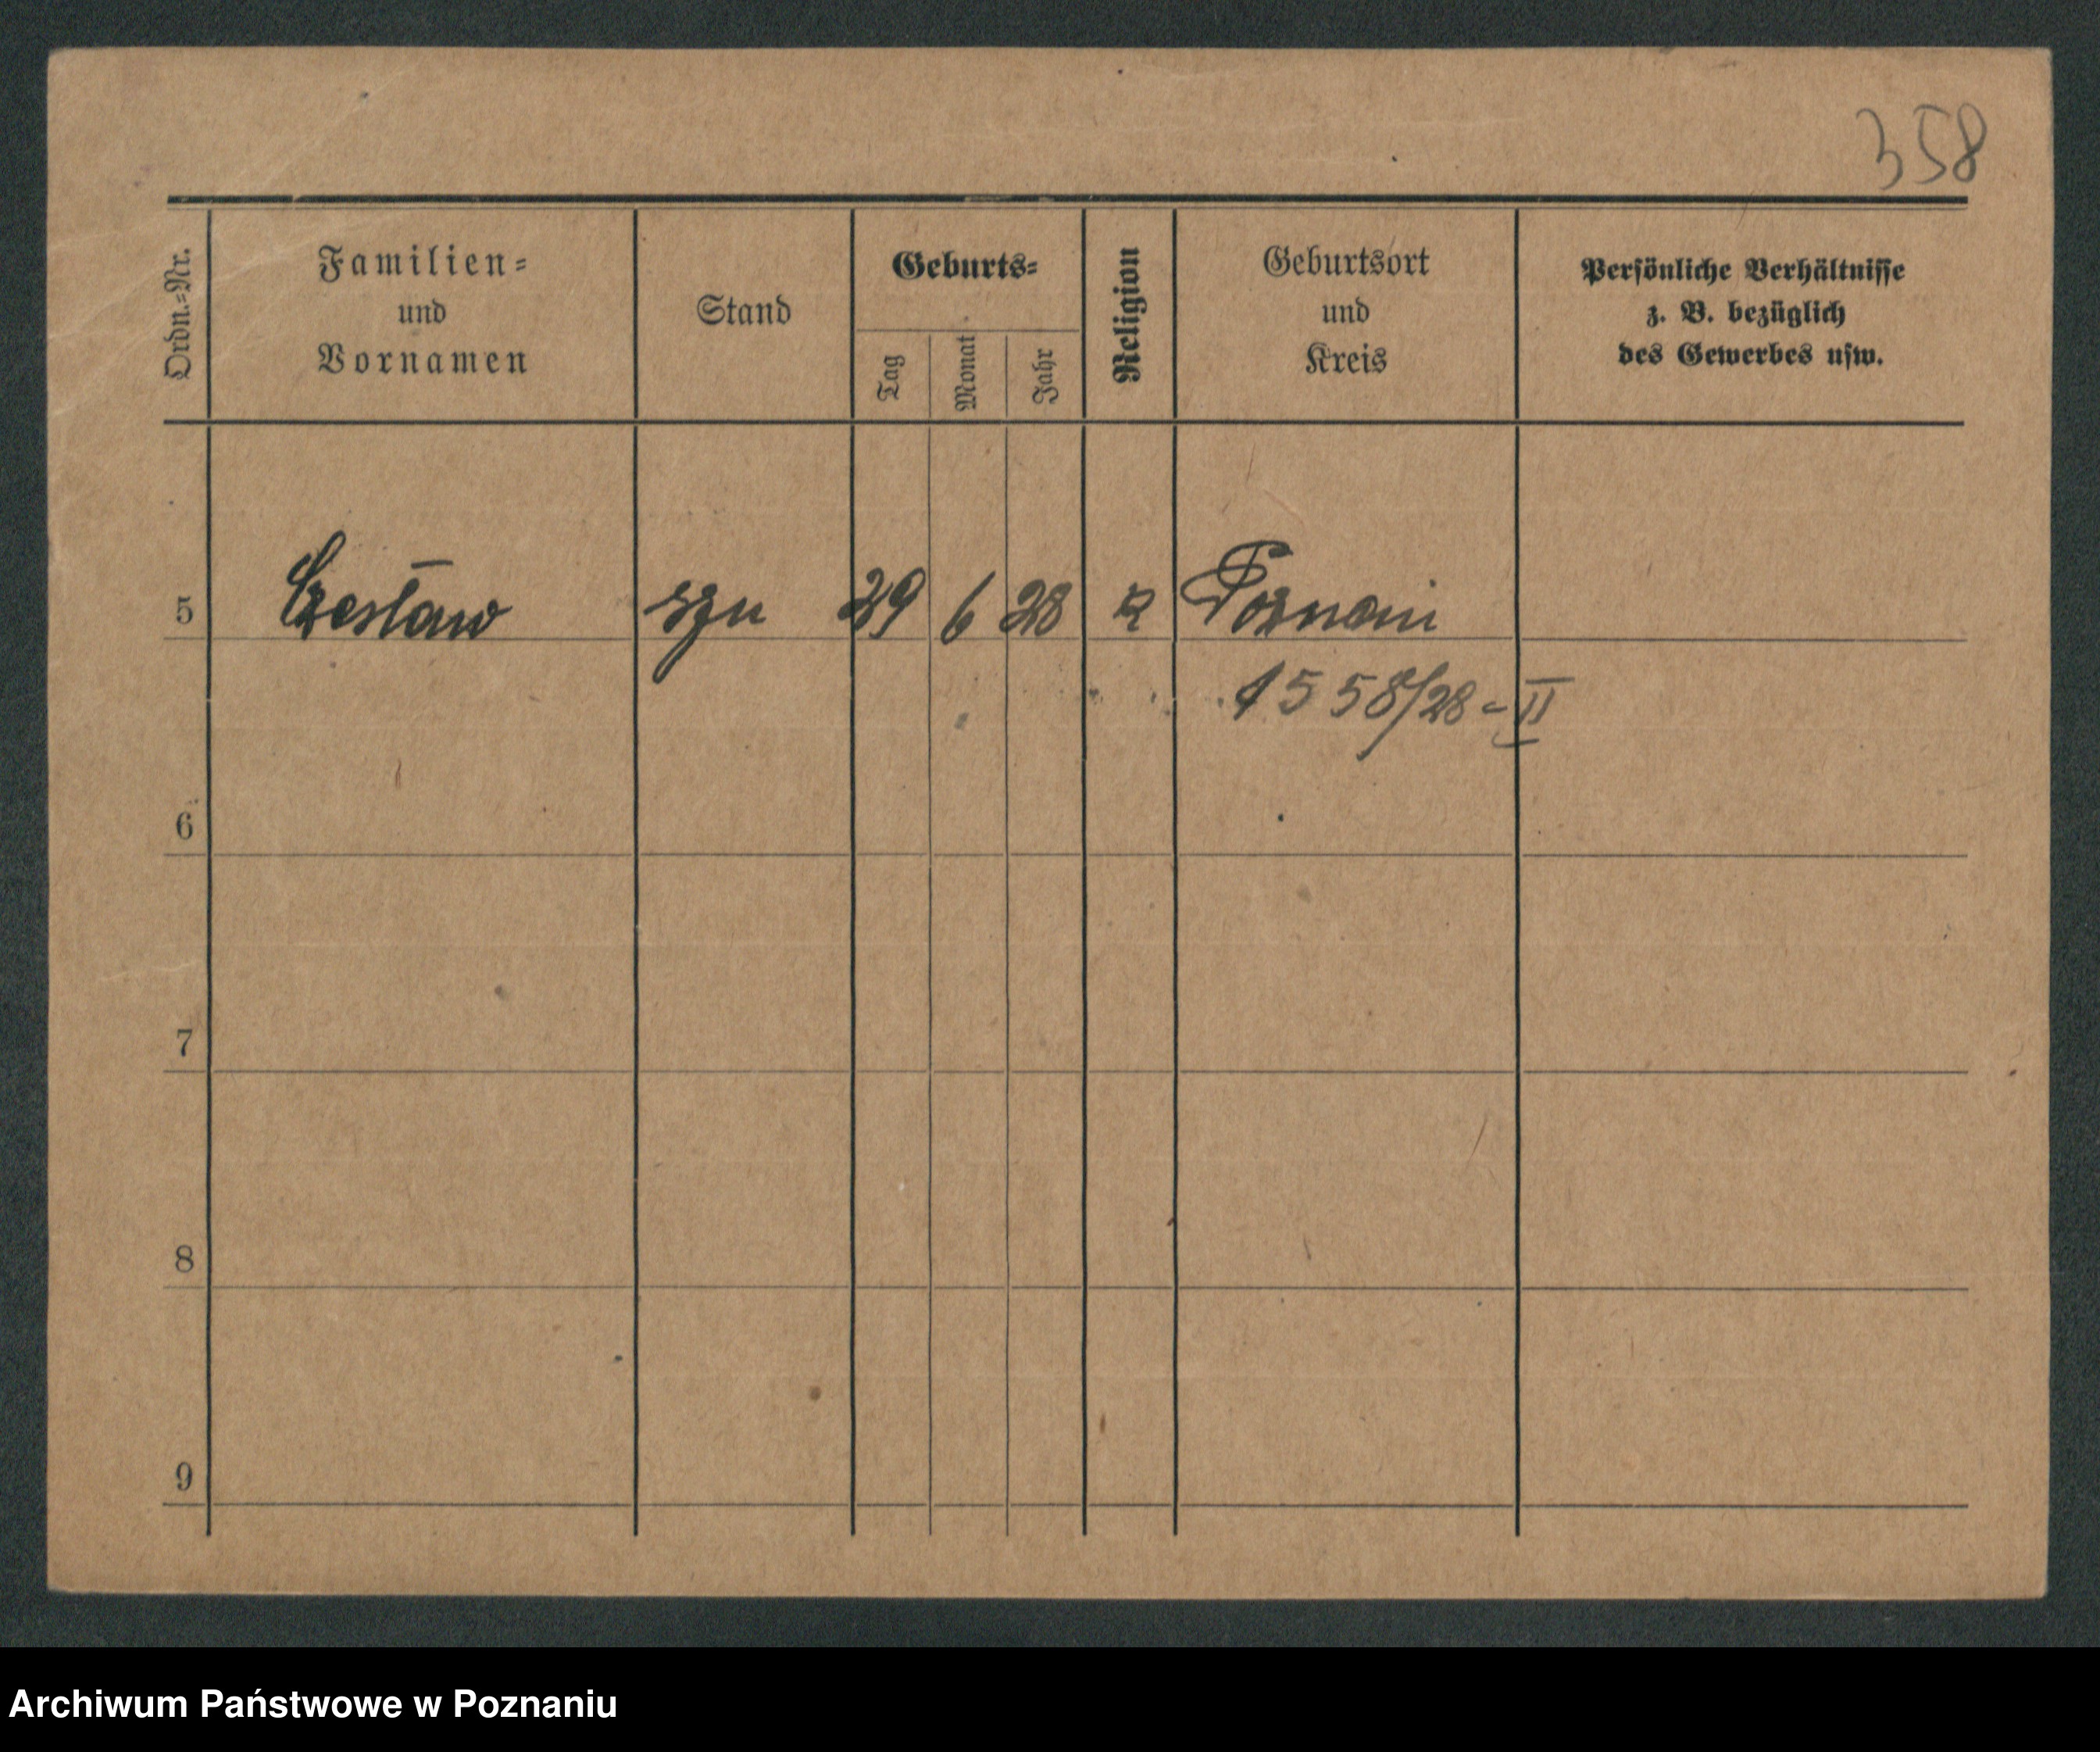 358
Ordn.-Nr.
Familien-
und
Vornamen
Stand
Geburts-
Tag
Monat
Jahr
Religion
Geburtsort
und
Kreis
Persönliche Verhältnisse
z. B. bezüglich
des Gewerbes usw.
5 Czesław syn 29 6 28 Poznań
1558/28-II
6
7
8
9
Archiwum Państwowe w Poznaniu